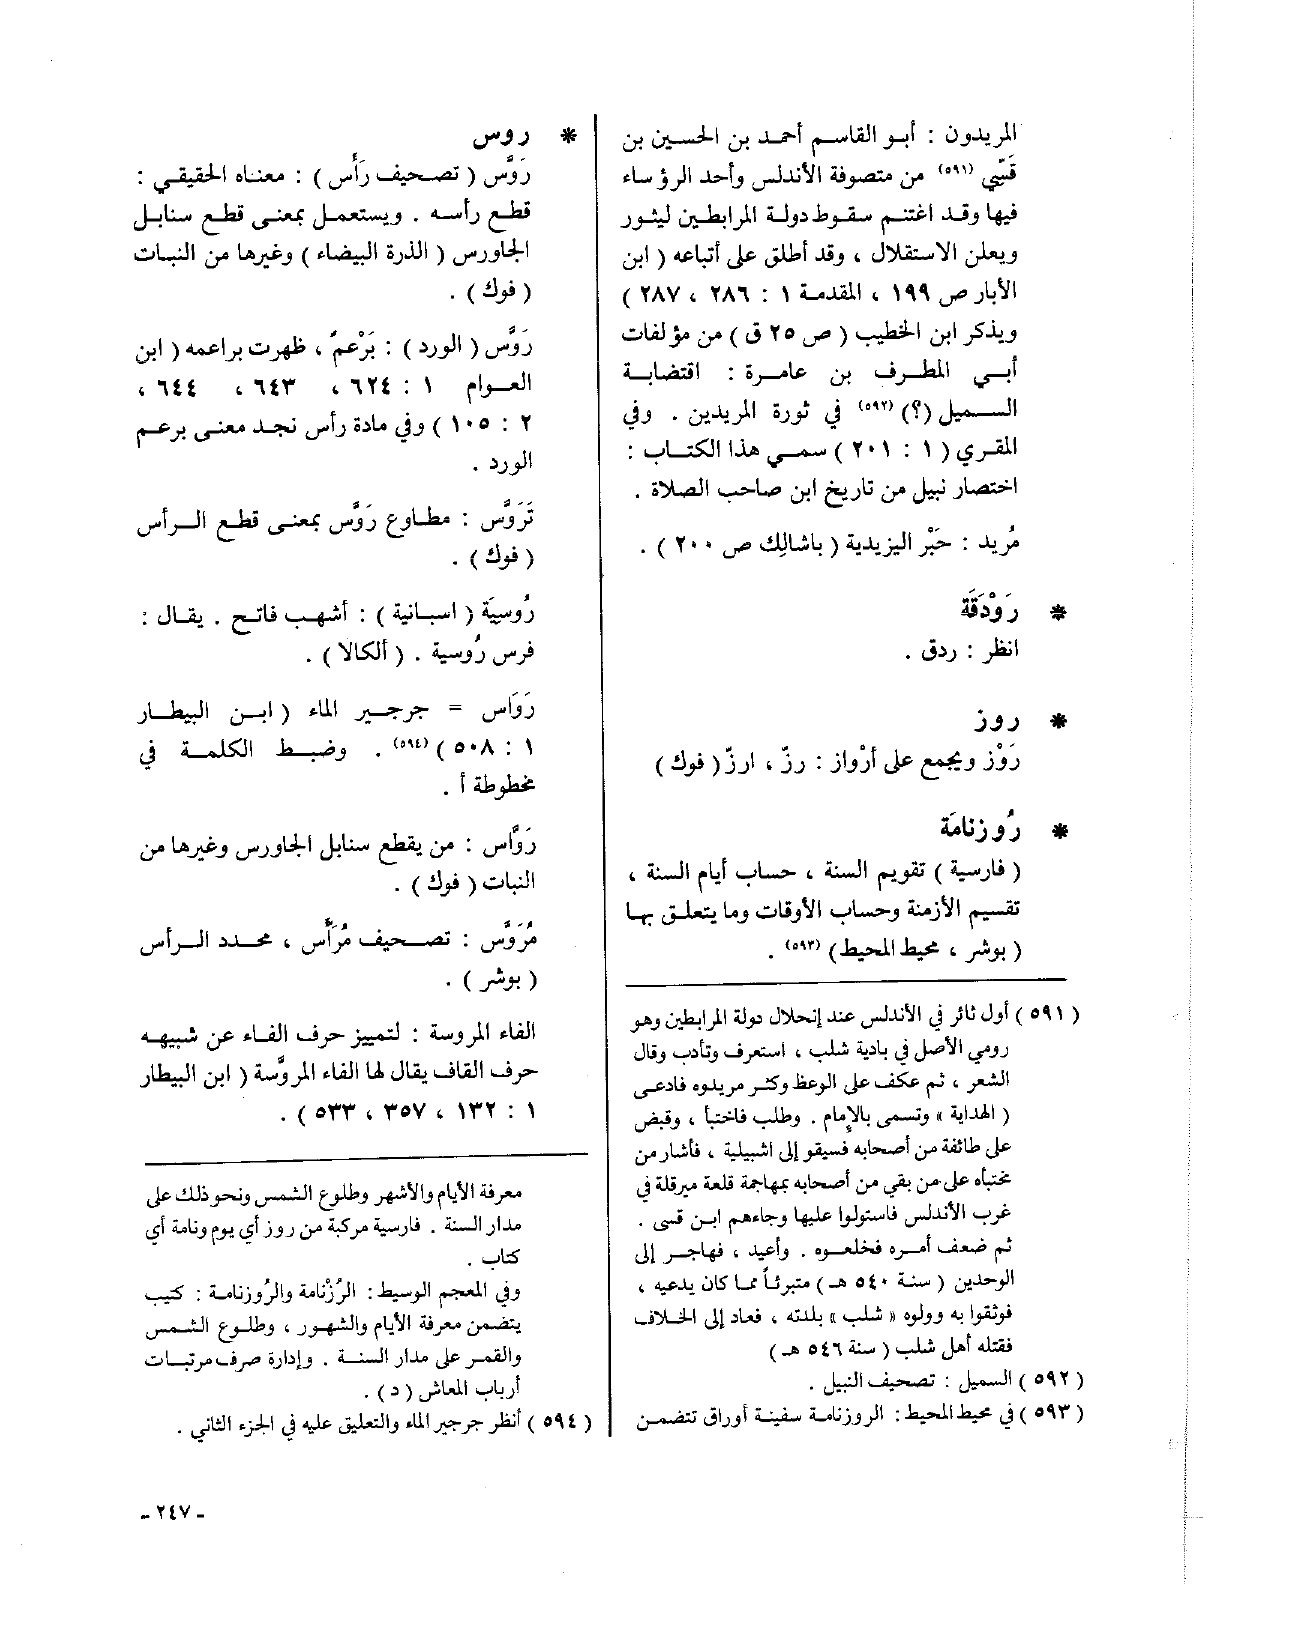 المريدون : أبو القاسم أحمد بن الحسين بن
قَسِّي (٥٩١) من متصوفة الأندلس وأحد الرؤساء
فيها وقد اغتنم سقوط دولة المرابطين ليثور
ويعلن الاستقلال ، وقد أطلق على أتباعه ( ابن
الأبار ص ١٩٩ ، المقدمة ١ : ٢٨٦ ، ٢٨٧ )
ويذكر ابن الخطيب ( ص ٢٥ ق ) من مؤلفات
أبي المطرف بن عامرة : اقتضابة
السميل (؟) (٥٩٢) في ثورة المريدين . وفي
المقري ( ١ : ٢٠١ ) سمي هذا الكتاب :
اختصار نبيل من تاريخ ابن صاحب الصلاة .
مُريد : حَبْر اليزيدية ( باشالِك ص ٢٠٠ ) .
* رَوْدَقَة
انظر : ردق .
* روز
رَوْز ويجمع على أرْواز : رزّ ، ارزّ ( فوك )
* رُوزنامَة
( فارسية ) تقويم السنة ، حساب أيام السنة ،
تقسيم الأزمنة وحساب الأوقات وما يتعلق بها
( بوشر ، محيط المحيط ) (٥٩٣) .
( ٥٩١ ) أول ثائر في الأندلس عند إنحلال دولة المرابطين وهو
رومي الأصل في بادية شلب ، استعرف وتأدب وقال
الشعر ، ثم عكف على الوعظ وكثر مريدوه فادعى
( الهداية » وتسمى بالإمام . وطلب فاختبأ ، وقبض
على طائفة من أصحابه فسيقو إلى اشبيلية ، فأشار من
مختبأه على من بقي من أصحابه بمهاجمة قلعة ميرقلة في
غرب الأندلس فاستولوا عليها وجاءهم ابن قسى .
ثم ضعف أمره فخلعوه . وأعيد ، فهاجر إلى
الوحدين ( سنة ٥٤٠ هـ ) متبرئاً مما كان يدعيه ،
فوثقوا به وولوه « شلب » بلدته ، فعاد إلى الخلاف
فقتله أهل شلب ( سنة ٥٤٦ هـ )
( ٥٩٢ ) السميل : تصحيف النبيل .
( ٥٩٣ ) في محيط المحيط : الروزنامة سفينة أوراق تتضمن
* روس
رَوَّس ( تصحيف رَأَّس ) : معناه الحقيقي :
قطع رأسه . ويستعمل بمعنى قطع سنابل
الجاورس ( الذرة البيضاء ) وغيرها من النبات
( فوك ) .
رَوَّس ( الورد ) : بَرْعمَ ، ظهرت براعمه ( ابن
العوام ١ : ٦٢٤ ، ٦٤٣ ، ٦٤٤ ،
٢ : ١٠٥ ) وفي مادة رأس نجد معنى برعم
الورد .
تَرَوَّس : مطاوع رَوَّس بمعنى قطع الرأس
( فوك ) .
رُوسيَة ( اسبانية ) : أشهب فاتح . يقال :
فرس رُوسية . ( ألكالا ) .
رَوَاس = جرجير الماء ( ابن البيطار
١ : ٥٠٨ ) (٥٩٤) . وضبط الكلمة في
مخطوطة أ .
رَوَّاس : من يقطع سنابل الجاورس وغيرها من
النبات ( فوك ) .
مُرَوَّس : تصحيف مُرَأَّس ، محدد الرأس
( بوشر ) .
الفاء المروسة : لتمييز حرف الفاء عن شبيهه
حرف القاف يقال لها الفاء المروَّسة ( ابن البيطار
١ : ١٣٢ ، ٣٥٧ ، ٥٣٣ ) .
معرفة الأيام والأشهر وطلوع الشمس ونحو ذلك على
مدار السنة . فارسية مركبة من روز أي يوم ونامة أي
كتاب .
وفي المعجم الوسيط : الرُزْنامة والرُوزنامة : كتيب
يتضمن معرفة الأيام والشهور ، وطلوع الشمس
والقمر على مدار السنة . وإدارة صرف مرتبات
أرباب المعاش ( د ) .
( ٥٩٤ ) أنظر جرجير الماء والتعليق عليه في الجزء الثاني .
- ٢٤٧ -